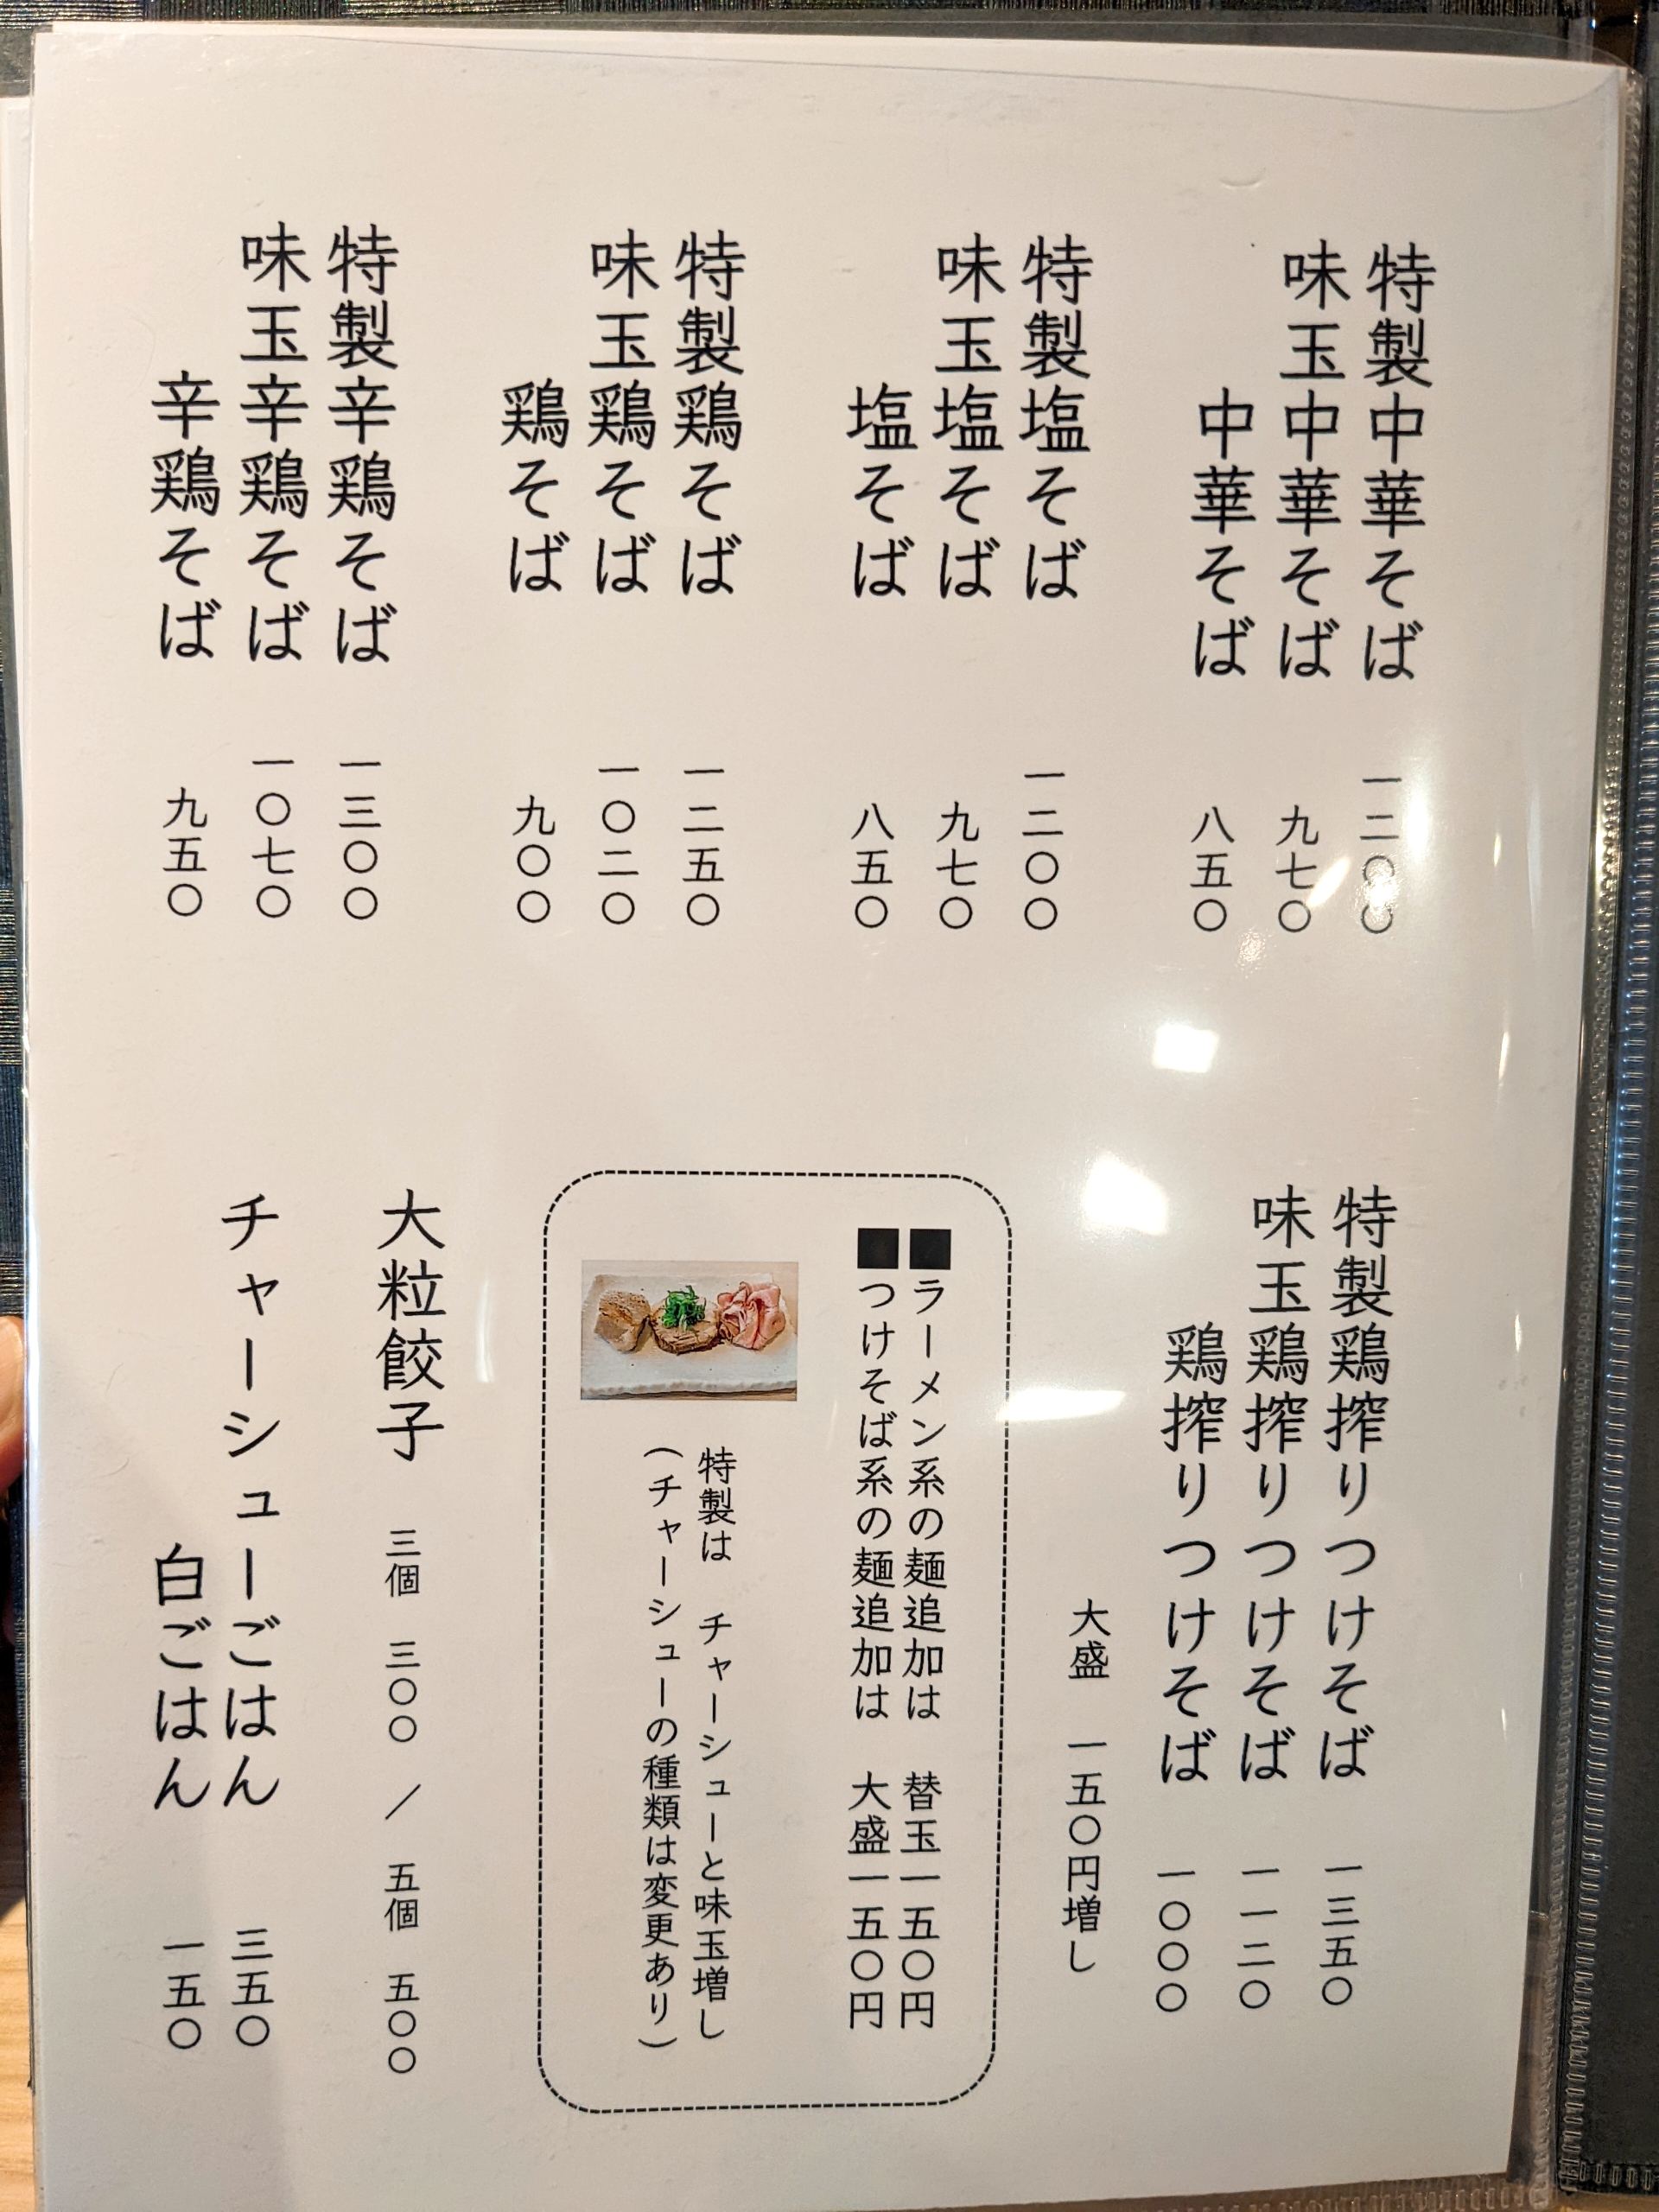 特製中華そば 一二〇〇
味玉中華そば 九七〇
中華そば 八五〇
特製塩そば 一二〇〇
味玉塩そば 九七〇
塩そば 八五〇
特製鶏そば 一二五〇
味玉鶏そば 一〇二〇
鶏そば 九〇〇
特製辛鶏そば 一三〇〇
味玉辛鶏そば 一〇七〇
辛鶏そば 九五〇
特製鶏搾りつけそば 一三五〇
味玉鶏搾りつけそば 一一二〇
鶏搾りつけそば 一〇〇〇
大盛 一五〇円増し
■ラーメン系の麺追加は 替玉一五〇円
■つけそば系の麺追加は 大盛一五〇円
特製は チャーシューと味玉増し
(チャーシューの種類は変更あり)
大粒餃子 三個 三〇〇 / 五個 五〇〇
チャーシューごはん 三五〇
白ごはん 一五〇